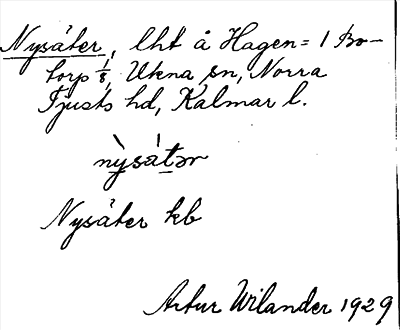 Nysäter, lht å Hagen = 1 Bo-
torp 1/8, Ukna sn, Norra
Tjusts hd, Kalmar l.
nỳsátər
Nysäter kb
Artur Wilander 1929